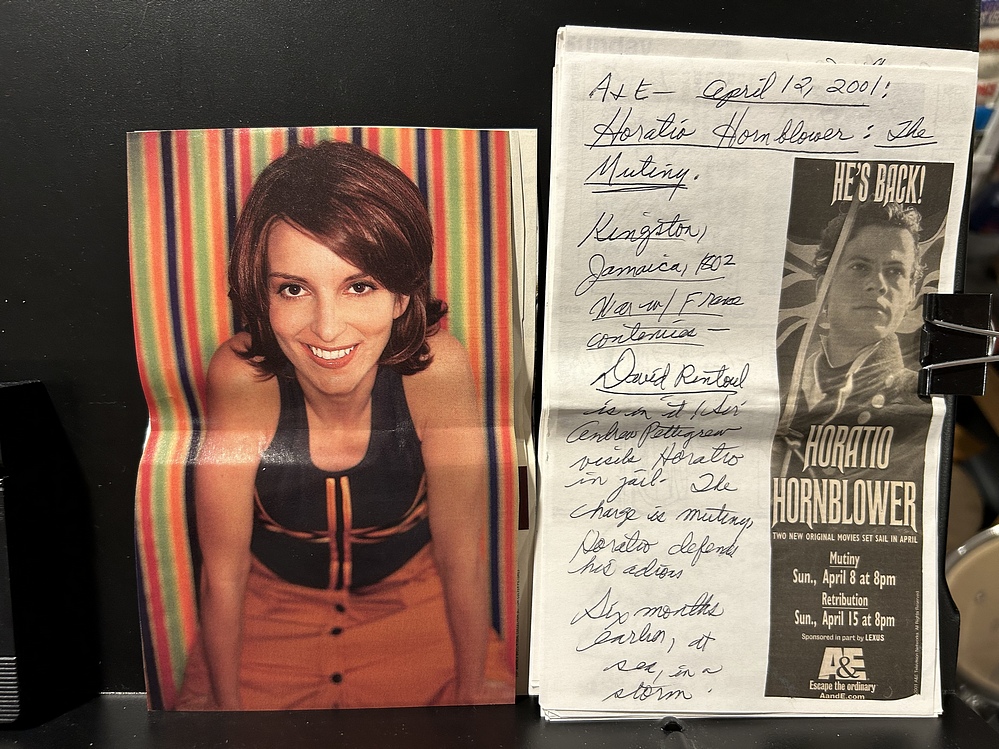 A+E— April 12, 2001:
Horatio Hornblower: The
Mutiny.
Kingston,
Jamaica, 1802
War w/ France
contenues —
David Rintoul
is in it! Sir
Andrew Pettigrew
visits Horatio
in jail. The
charge is mutiny,
Horatio defends
his actions
Six months
earlier, at
sea, in a
storm.
HE'S BACK!
HORATIO
HORNBLOWER
TWO NEW ORIGINAL MOVIES SET SAIL IN APRIL
Mutiny
Sun., April 8 at 8pm
Retribution
Sun., April 15 at 8pm
Sponsored in part by LEXUS
A&E
Escape the ordinary
AandE.com